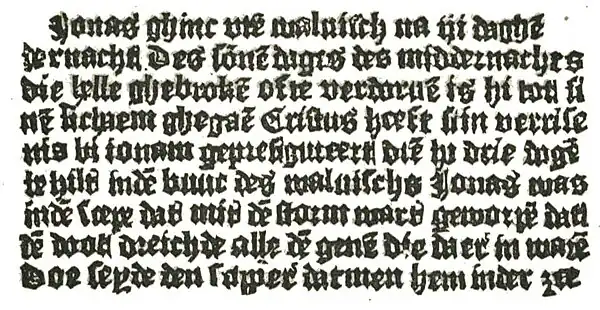 Jonas ghinc utē walvisch na iij daghē
der nacht Des sōnē dages des middernachts
die helle ghebrokē ofte verdorvē is hi tott si
nē lichaem ghegaē Cristus heeft sijn verrise
nis bi ionam geprefigureert diē hi drie dagē
te hilt indē buuc des walvischs Jonas was
indē scepe dat mit dē storm wart geworpē datt
dē doot dreichde alle dē genē die daer in warē
Doe seyde den scipier datmen hem inder zee